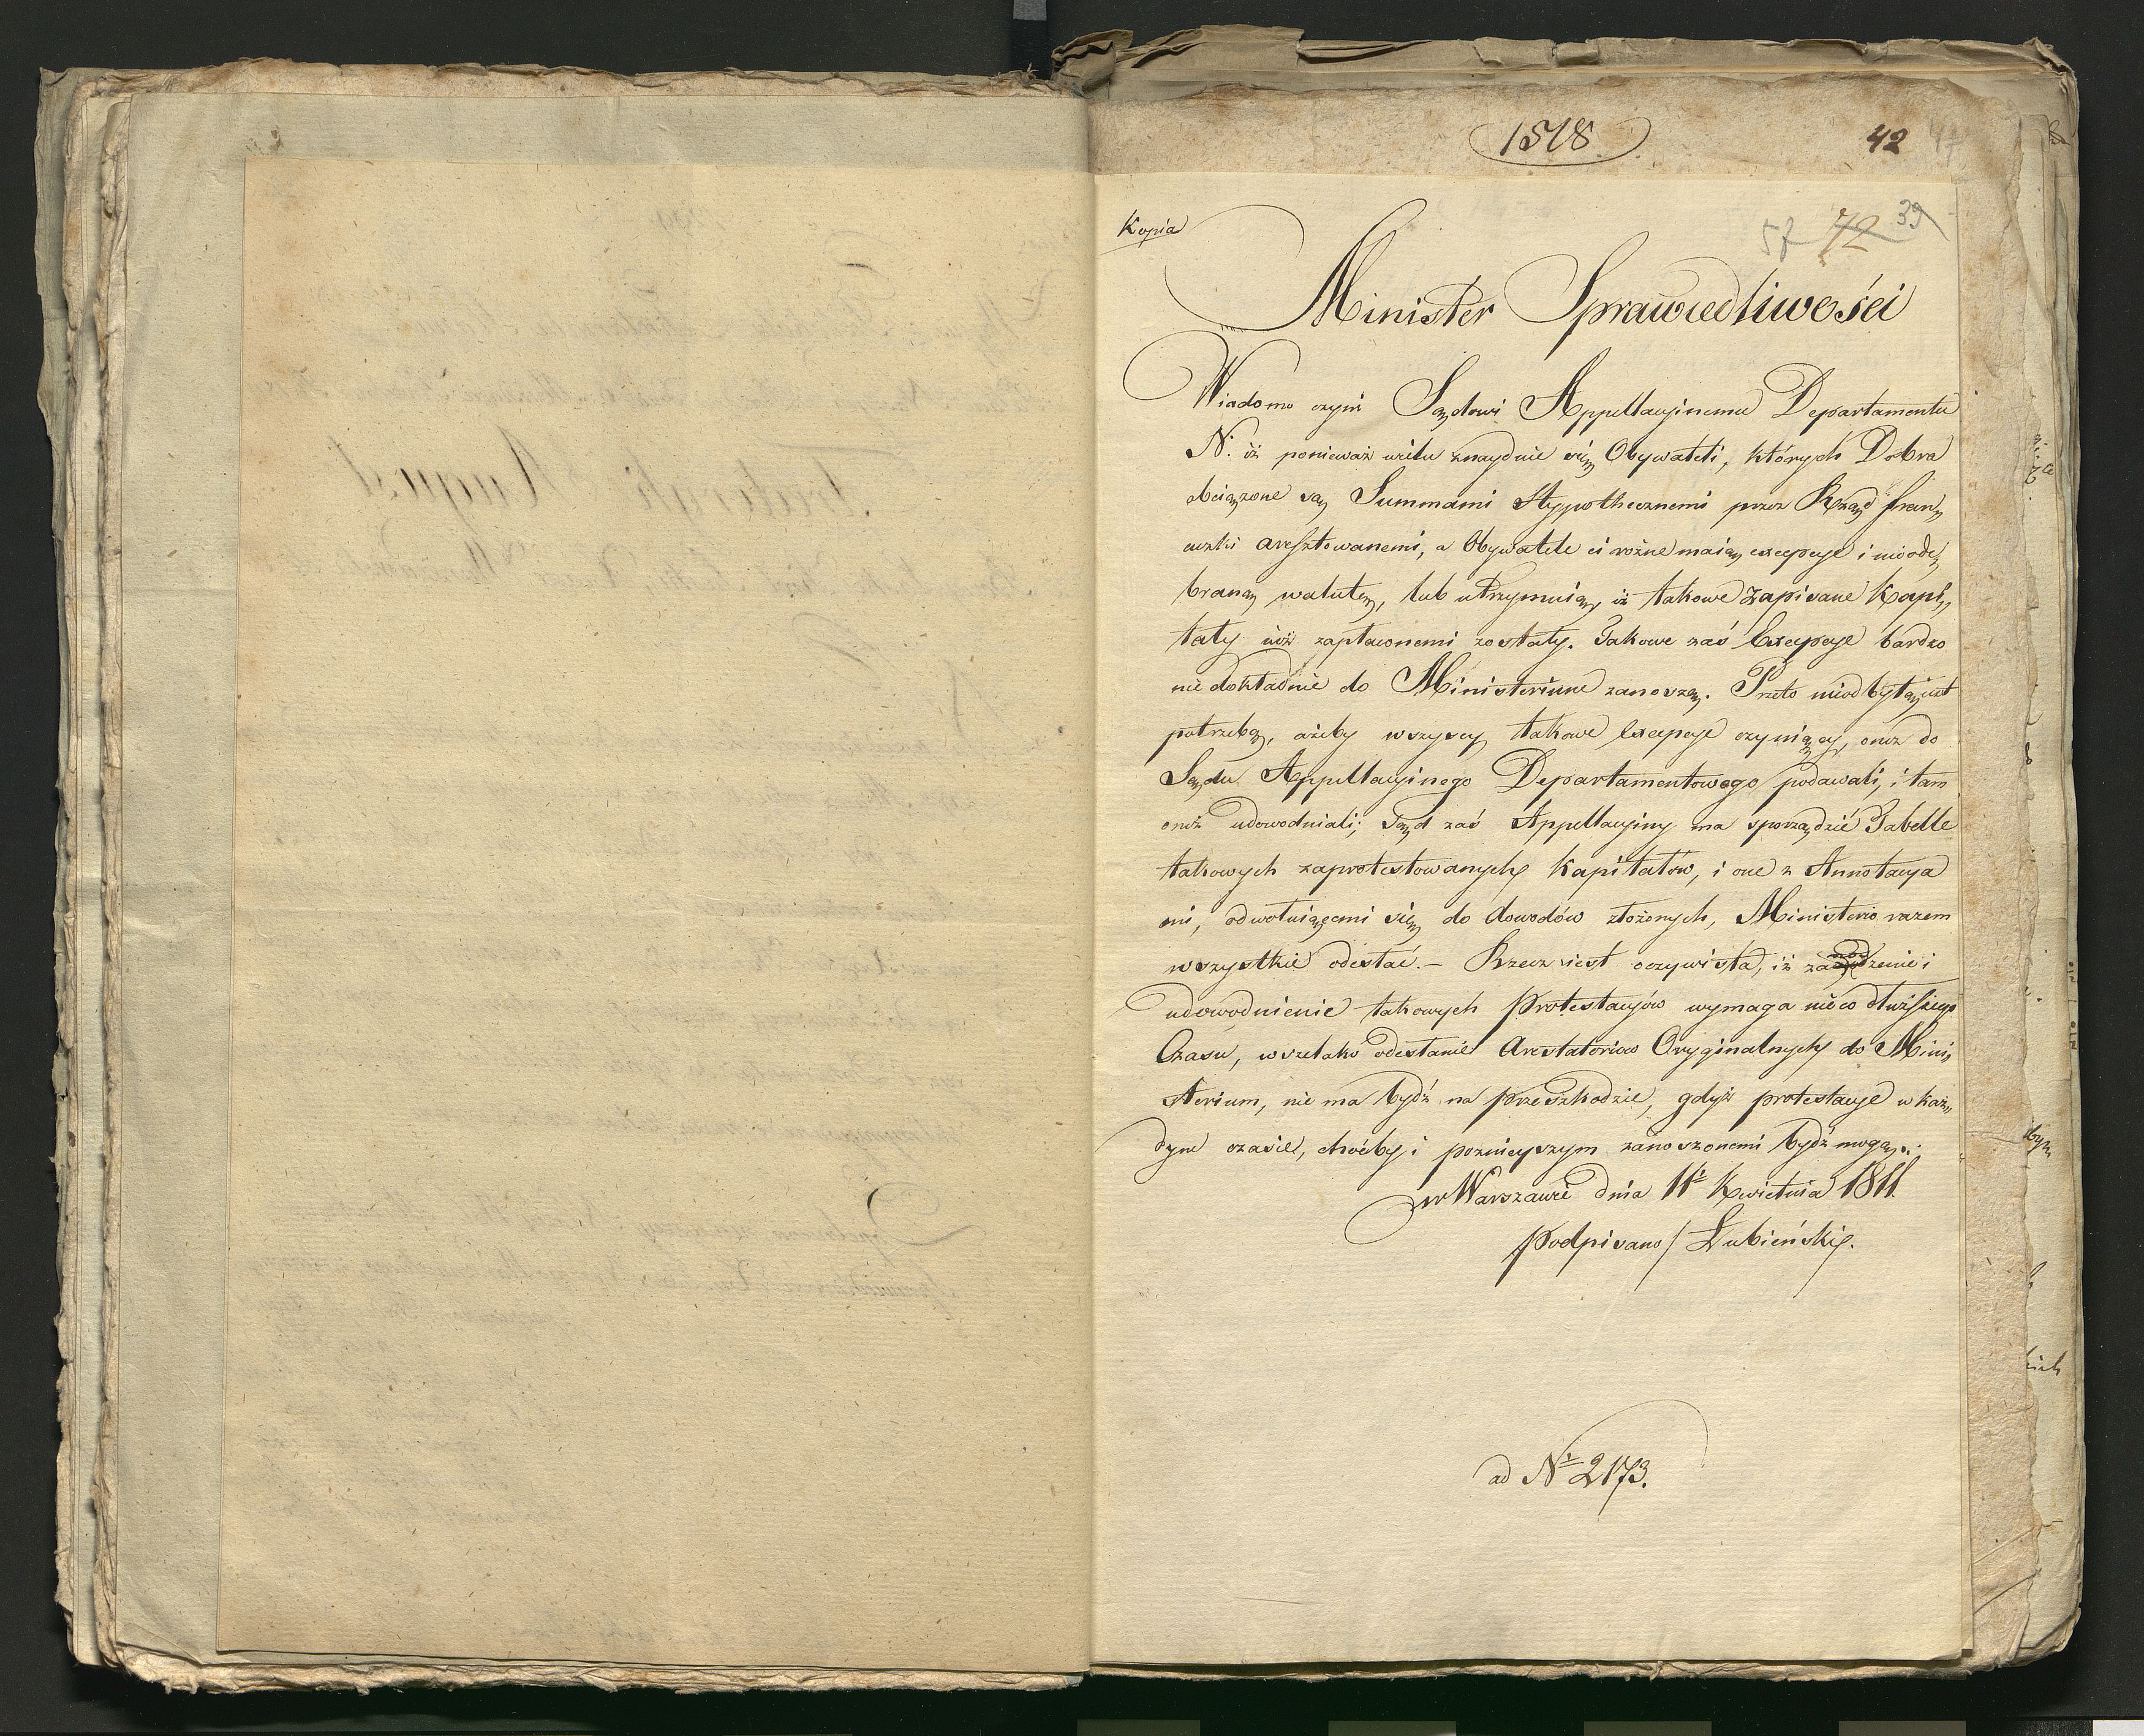 1518
42
Kopia
57 72 39
Minister Sprawiedliwości
Wiadomo czyni Sądowi Appellacyinemu Departamentu
N. iż ponieważ wielu znayduie się Obywateli, których Dobra
obciążone są Summami Hypothecznemi przez Rząd fran„
cuzki aresztowanemi, a Obywatele ci rożne maią excepcye i nieode„
braną walutę, lub utrzymuią, iż takowe zapisane Kapi„
tały iuż zapłaconemi zostały. Takowe zaś Excepcye bardzo
niedokładnie do Ministerium zanoszą. Przeto nieodbytą iest
potrzebą, ażeby wszyscy takowe excepcye czyniący, oneż do
Sądu Appellacyinego Departamentowego podawali, i tam
oneż udowodniali; Sąd zaś Appellacyiny ma sporządzić Tabelle
takowych zaprotestowanych Kapitałów, i one z Annotacya
mi, odwołuiącemi się do dowodów złożonych, Ministerio razem
wszystkie odesłać. – Rzecz iest oczywista, iż i
udowodnienie takowych Protestacyów wymaga nieco dłuższego
Czasu, wszelako odesłanie Arestatoriow Oryginalnych do Mini„
sterium, nie ma bydź na przeszkodzie, gdyż protestacye w każ„
dym czasie, choćby i poznieyszym zanoszonemi bydź mogą.
w Warszawie dnia 11º Kwietnia 1811.
Podpisano / Łubieński.
ad Nº 2173.